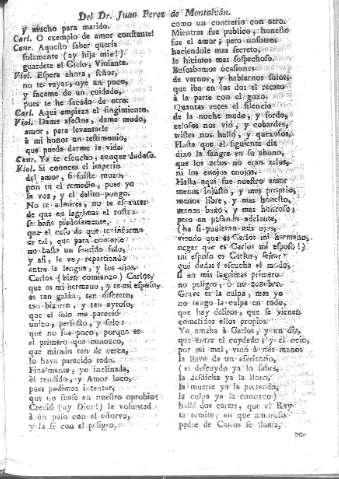 Del Dr. Juan Perez de Montalván.
y mucho para marido.
Carl. O exemplo de amor constante!
Conr. Aquesto saber queria
solamente (ay hija mia!)
guardete el Cielo, Violante.
Viol. Espera ahora, señor,
no te vayas, oye un poco,
y sacame de un cuidado,
pues te he sacado de otro.
Carl. Aqui empieza el fingimiento.
Viol. Dame afectos, dame modo,
amor, para levantarle
à mi honor un testimonio,
que pueda darme la vida.
Conr. Ya te escucho, aunque dudoso.
Viol. Si conoces el imperio
del amor, si fuiste mozo,
pon tu el remedio, pues yo
la voz, y el delito pongo.
No te admires, no te espantes
de que en lagrimas el rostro
se bañe piadosamente,
que el caso de que te informo
es tal, que para contarle
no basta un sentido solo,
y asi, le voy repartiendo
entre la lengua, y los ojos.
Carlos (bien comienzo) Carlos,
que es mi hermano, y es mi esposo,
es tan galán, tan discreto,
tan bizarro, y tan ayroso,
que el solo me pareció
unico, perfecto, y solo:
que no fue poco, porque es
el primero que conozco,
que mirado tan de cerca,
lo haya parecido todo.
Finalmente, yo inclinada,
él rendido, y Amor loco,
para podimos intentar,
que no fuese en nuestro oprobio:
Creció (ay Dios!) la voluntad
à un paso con el estorvo,
y la fé con el peligro,
como un contrario con otro.
Mientras fue publico, honesto
fue el amor; pero nosotros
haciendole mas secreto,
le hicimos mas sospechoso.
Buscabamos ocasiones
de vernos, y hablarnos solos,
que iba en las dos el recato
à la parte con el gozo.
Quantas veces el silencio
de la noche mudo, y sordo,
zelosos nos vió, y cobardes,
tristes nos halló, y quexosos,
Hasta que el siguiente dia
dixo la sangre en su abono,
que los zelos no eran zelos,
ni los enojos enojos.
Hasta aqui fue nuestro amor
menos injusto, y mas proprio,
menos libre, y mas honesto,
menos baxo, y mas honroso:
pero en pasando adelante,
viendo que es Carlos mi hermano,
negar que es Carlos mi esposo!)
mi esposo es Carlos, señor
oye ahora! escucha el modo,
si en mis lagrimas primero
no peligro, ò no quiebro.
Grave es la culpa, mas yo
no tengo la culpa en todo,
que hay delitos, que se vienen
cometidos ellos propios.
Yo amaba à Carlos, y un dia,
que entre el cuydado, y el ocio,
por mi mal, vino à mis manos
la llave de un escritorio,
(el descuydo ya lo sabes,
la desdicha ya la lloro,
la muerte ya la pretendo,
la culpa ya la conozco)
hallé dos cartas, que el Rey
te remite; en que amoroso
padre de Carlos se llama,